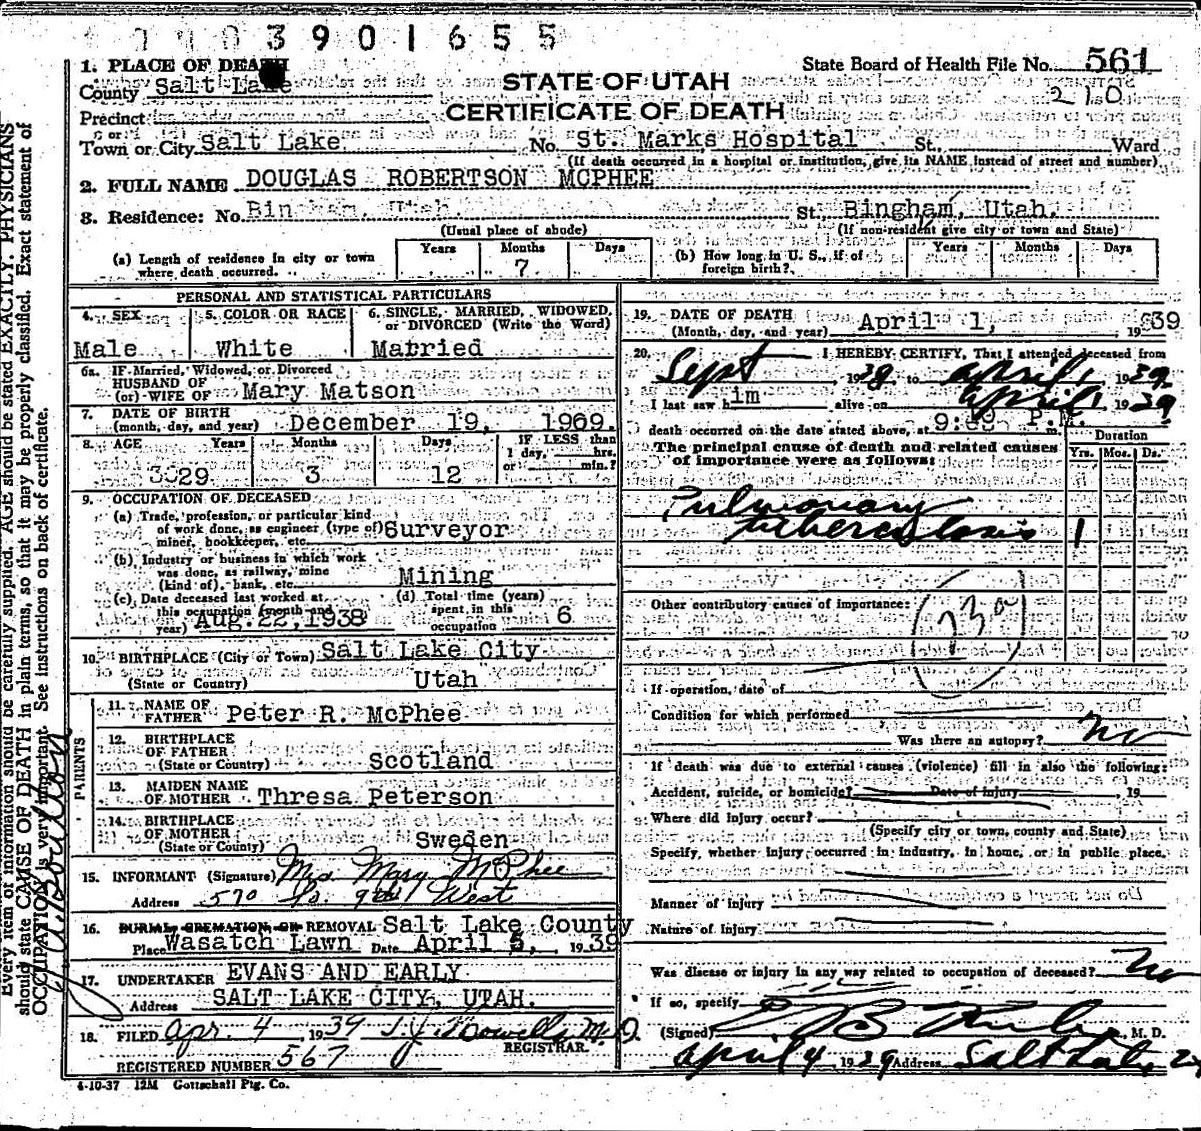 3901655
1. PLACE OF DEATH
County Salt Lake
STATE OF UTAH
CERTIFICATE OF DEATH
State Board of Health File No. 561
210
Precinct
or
Town or City Salt Lake No. St. Marks Hospital St., Ward
(If death occurred in a hospital or institution, give its NAME instead of street and number)
2. FULL NAME DOUGLAS ROBERTSON MCPHEE
3. Residence: No. Bingham, Utah. St., Bingham, Utah.
(Usual place of abode) (If non-resident give city or town and State)
(a) Length of residence in city or town where death occurred. Years Months 7 Days
(b) How long in U. S., if of foreign birth? Years Months Days
PERSONAL AND STATISTICAL PARTICULARS
4. SEX Male
5. COLOR OR RACE White
6. SINGLE, MARRIED, WIDOWED, or DIVORCED (Write the Word) Married
6a. IF Married, Widowed, or Divorced
HUSBAND OF
(or) WIFE OF Mary Matson
7. DATE OF BIRTH
(month, day, and year) December 19, 1909.
8. AGE Years 29 Months 3 Days 12 IF LESS than 1 day, hrs. or min.?
9. OCCUPATION OF DECEASED
(a) Trade, profession, or particular kind
of work done, as engineer (type of) Surveyor
miner, bookkeeper, etc.
(b) Industry or business in which work
was done, as railway, mine Mining
(kind of), bank, etc.
(c) Date deceased last worked at
this occupation (month and
year) Aug. 22, 1938
(d) Total time (years)
spent in this
occupation 6
10. BIRTHPLACE (City or Town) Salt Lake City
(State or Country) Utah
PARENTS
11. NAME OF
FATHER Peter R. McPhee
12. BIRTHPLACE
OF FATHER
(State or Country) Scotland
13. MAIDEN NAME
OF MOTHER Thresa Peterson
14. BIRTHPLACE
OF MOTHER
(State or Country) Sweden
15. INFORMANT (Signature) Mrs Mary McPhee
Address 570 So. 9th West
16. BURIAL CREMATION OR REMOVAL Salt Lake County
Place Wasatch Lawn Date April 5, 1939
17. UNDERTAKER EVANS AND EARLY
Address SALT LAKE CITY, UTAH.
18. FILED Apr. 4 1939 T. J. Howells M.D.
REGISTRAR.
REGISTERED NUMBER 567
4-10-37 12M Gottschall Ptg. Co.
19. DATE OF DEATH
(Month, day, and year) April 1, 1939
20. I HEREBY CERTIFY, That I attended deceased from
Sept 1938 to April 1 1939
I last saw him alive on April 1 1939
death occurred on the date stated above, at P.M. m.
The principal cause of death and related causes
of importance were as follows:
Duration
Yrs. Mos. Ds.
Pulmonary
tuberculosis 1
Other contributory causes of importance:
If operation, date of
Condition for which performed
Was there an autopsy? No
If death was due to external causes (violence) fill in also the following:
Accident, suicide, or homicide? Date of injury 19
Where did injury occur?
(Specify city or town, county and State)
Specify, whether injury occurred in industry, in home, or in public place.
Manner of injury
Nature of injury
Was disease or injury in any way related to occupation of deceased? No
If so, specify
(Signed) M. D.
April 4 1939 Address Salt Lake
Every item of information should be carefully supplied. AGE should be stated EXACTLY. PHYSICIANS
should state CAUSE OF DEATH in plain terms, so that it may be properly classified. Exact statement of
OCCUPATION is very important. See instructions on back of certificate.